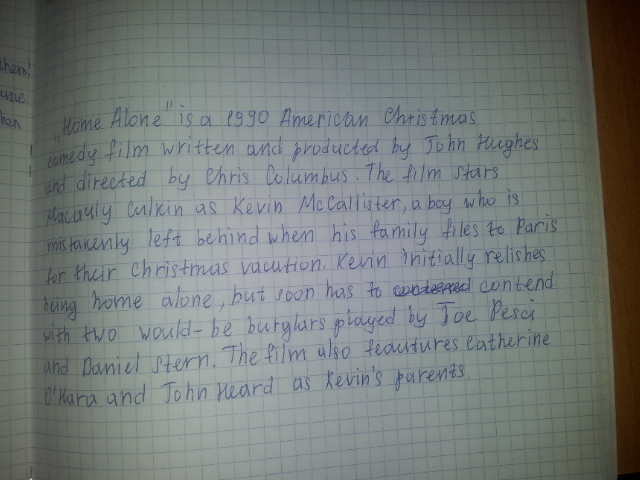 them!
usic
han
„Home Alone" is a 1990 American Christmas
comedy film written and producted by John Hughes
and directed by Chris Columbus. The film stars
Macauly Culkin as Kevin McCallister, a boy who is
mistakenly left behind when his family files to Paris
for their Christmas vacution. Kevin initially relishes
being home alone, but soon has to contend
with two would-be burglars played by Joe Pesci
and Daniel Stern. The film also feautures Catherine
O'Hara and John Heard as Kevin's parents.